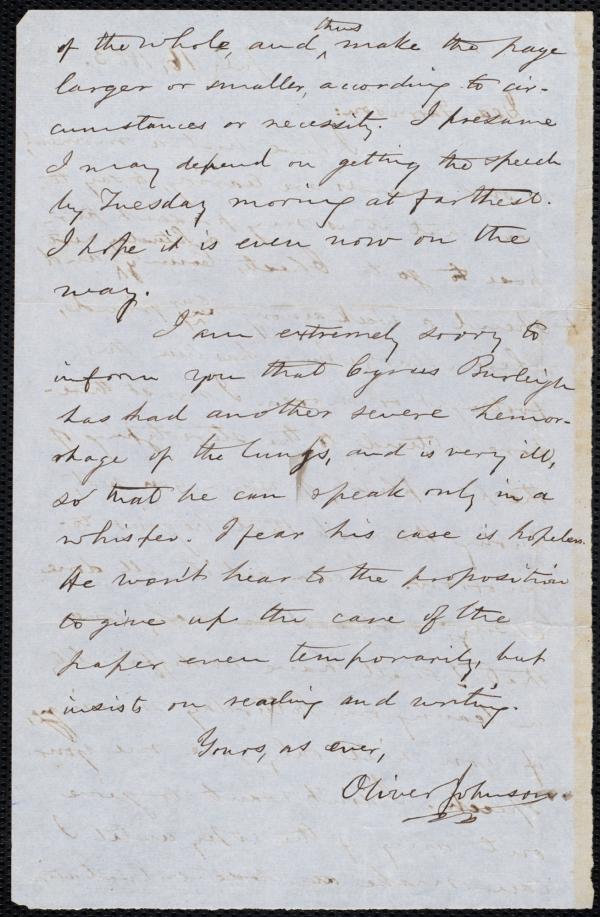 of the whole, and thus make the page
larger or smaller, according to cir-
cumstances or necessity. I presume
I may depend on getting the speech
by Tuesday moring at farthest.
I hope it is even now on the
way.
I am extremely sorry to
inform you that Cyrus Burleigh
has had another severe hemor-
rhage of the lungs, and is very ill,
so that he can speak only in a
whisper. I fear his case is hopeless.
He won't hear to the proposition
to give up the care of the
paper even temporarily, but
insists on reading and writing.
Yours, as ever,
Oliver Johnson.